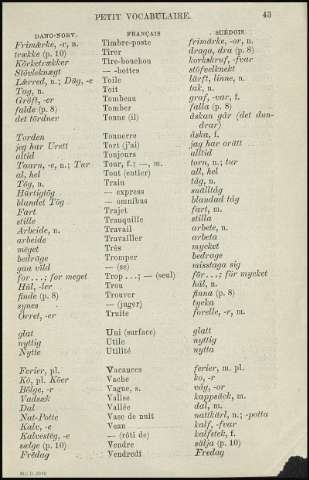 PETIT VOCABULAIRE. 43
DANO-NORV. FRANÇAIS SUÉDOIS
Frimærke, -r, n. Timbre-poste frimärke, -or, n.
trække (p. 10) Tirer draga, dra (p. 8)
Körketrækker Tire-bouchon korkskruf, -var
Stövleknægt — -bottes stöfvelknekt
Lærred, n.; Dûg, -e Toile lärft, linne, n.
Tag, n. Toit tak, n.
Gröft, -er Tombeau graf, -var, f.
falde (p. 8) Tomber falla (p. 8)
det tördner Tonne (il) åskan går (det dun-
drar)
Torden Tonnerre åska, f.
jeg har Urett Tort (j'ai) jag har orätt
altid Toujours alltid
Taarn, -e, n.; Tur Tour, f.; —, m. torn, n.; tur
al, hel Tout (entier) all, hel
Tög, n. Train tåg, n.
Hürtigtög — express snälltåg
blandet Tög — omnibus blandad tåg
Fart Trajet fart, m.
stille Tranquille stilla
Arbeide, n. Travail arbete, n.
arbeide Travailler arbeta
meget Très mycket
bedrage Tromper bedraga
gaa vild — (se) misstaga sig
for...; for meget Trop...; — (seul) för...; för mycket
Hûl, -ler Trou hål, n.
finde (p. 8) Trouver finna (p. 8)
synes — (juger) tycka
Örret, -er Truite forelle, -r, m.
glat Uni (surface) glatt
nyttig Utile nyttig
Nytte Utilité nytta
Ferier, pl. Vacances ferier, m. pl.
Kö, pl. Köer Vache ko, -r
Bölge, -r Vague, s. våg, -or
Vadsæk Valise kappsäck, m.
Dal Vallée dal, m.
Nat-Potte Vase de nuit nattkärl, n.; -potta
Kalv, -e Veau kalf, -var
Kalvestêg, -e — (rôti de) kalfstek, f.
selge (p. 10) Vendre sälja (p. 10)
Frêdag Vendredi Fredag